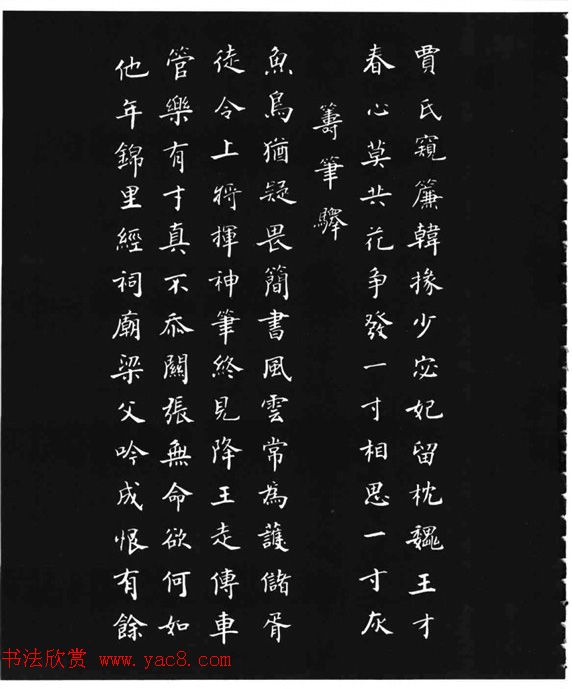 賈氏窺簾韓掾少宓妃留枕魏王才
春心莫共花争發一寸相思一寸灰
籌筆驛
魚鳥猶疑畏簡書風雲常為護儲胥
徒令上將揮神筆終見降王走傳車
管樂有才真不忝關張無命欲何如
他年錦里經祠廟梁父吟成恨有餘
书法欣赏 www.yac8.com